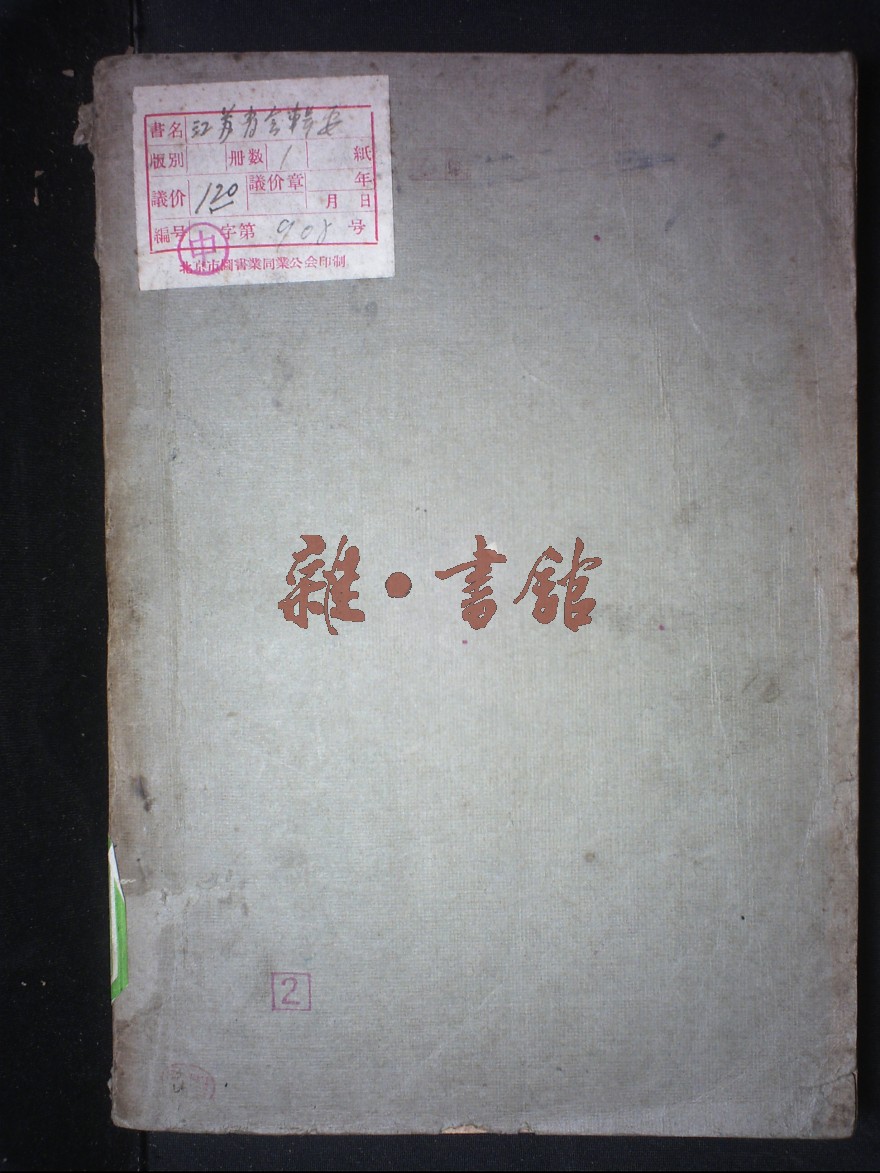 書名 江苏省会輯要
版別 册数 1 紙
議价 1.20 議价章 年
月 日
編号 中 字第 908 号
北京市圖書業同業公会印制
雜·書館
2